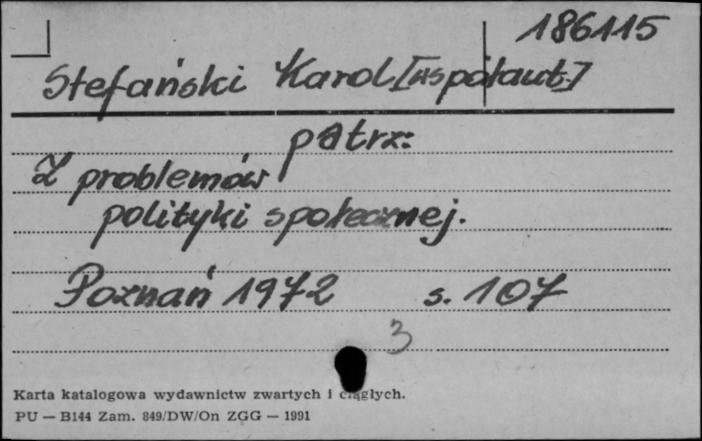 186115
Stefański Karol [współaut.]
patrz:
Z problemów
polityki społecznej.
Poznań 1972 s. 107
3
Karta katalogowa wydawnictw zwartych i ciągłych.
PU — B144 Zam. 849/DW/On ZGG — 1991